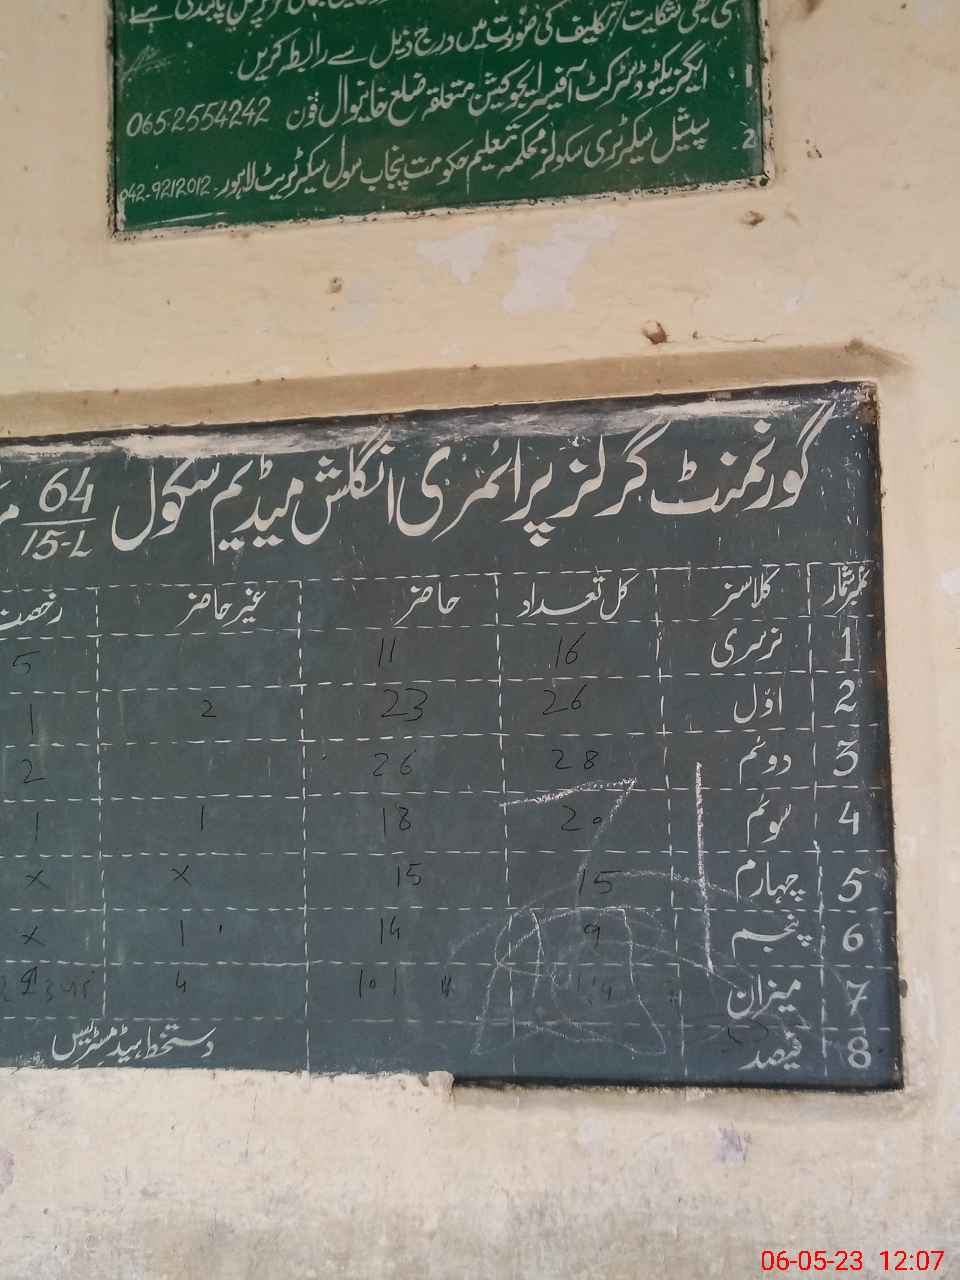 کسی بھی شکایت / تکلیف کی صورت میں درج ذیل سے رابطہ کریں
1. ایگزیکٹو ڈسٹرکٹ آفیسر ایجوکیشن متعلقہ ضلع خانیوال فون 065-2554242
2. سپیشل سیکرٹری سکولز محکمہ تعلیم حکومت پنجاب سول سیکرٹریٹ لاہور 042-9212012
گورنمنٹ گرلز پرائمری انگلش میڈیم سکول 64/15-L
نمبر شمار کلاسز کل تعداد حاضر غیر حاضر رخصت
1 نرسری 16 11 5
2 اوّل 26 23 2 1
3 دوئم 28 26 2
4 سوئم 20 18 1 1
5 چہارم 15 15 x x
6 پنجم 9 14 1 x
7 میزان 101 4
8 فیصد
دستخط ہیڈ مسٹریس
06-05-23 12:07